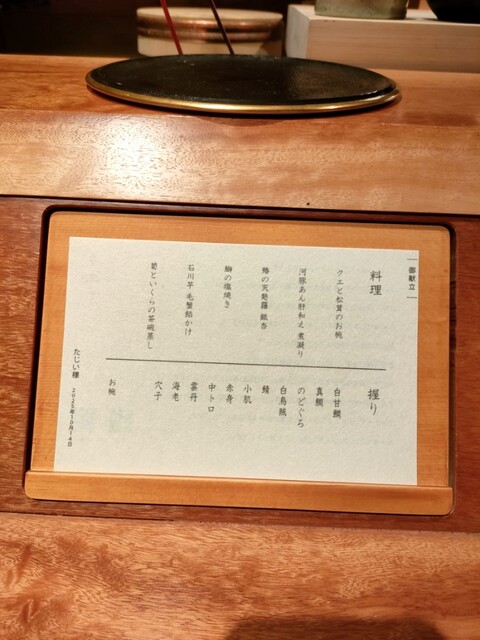 御献立
料理
クエと松茸のお椀
河豚あん肝和え 煮凝り
鱧の天麩羅 銀杏
鰤の塩焼き
石川芋 毛蟹餡かけ
菊といくらの茶碗蒸し
握り
白甘鯛
真鯛
のどぐろ
白烏賊
鯖
小肌
赤身
中トロ
雲丹
海老
穴子
お椀
たじい様
2025年10月14日